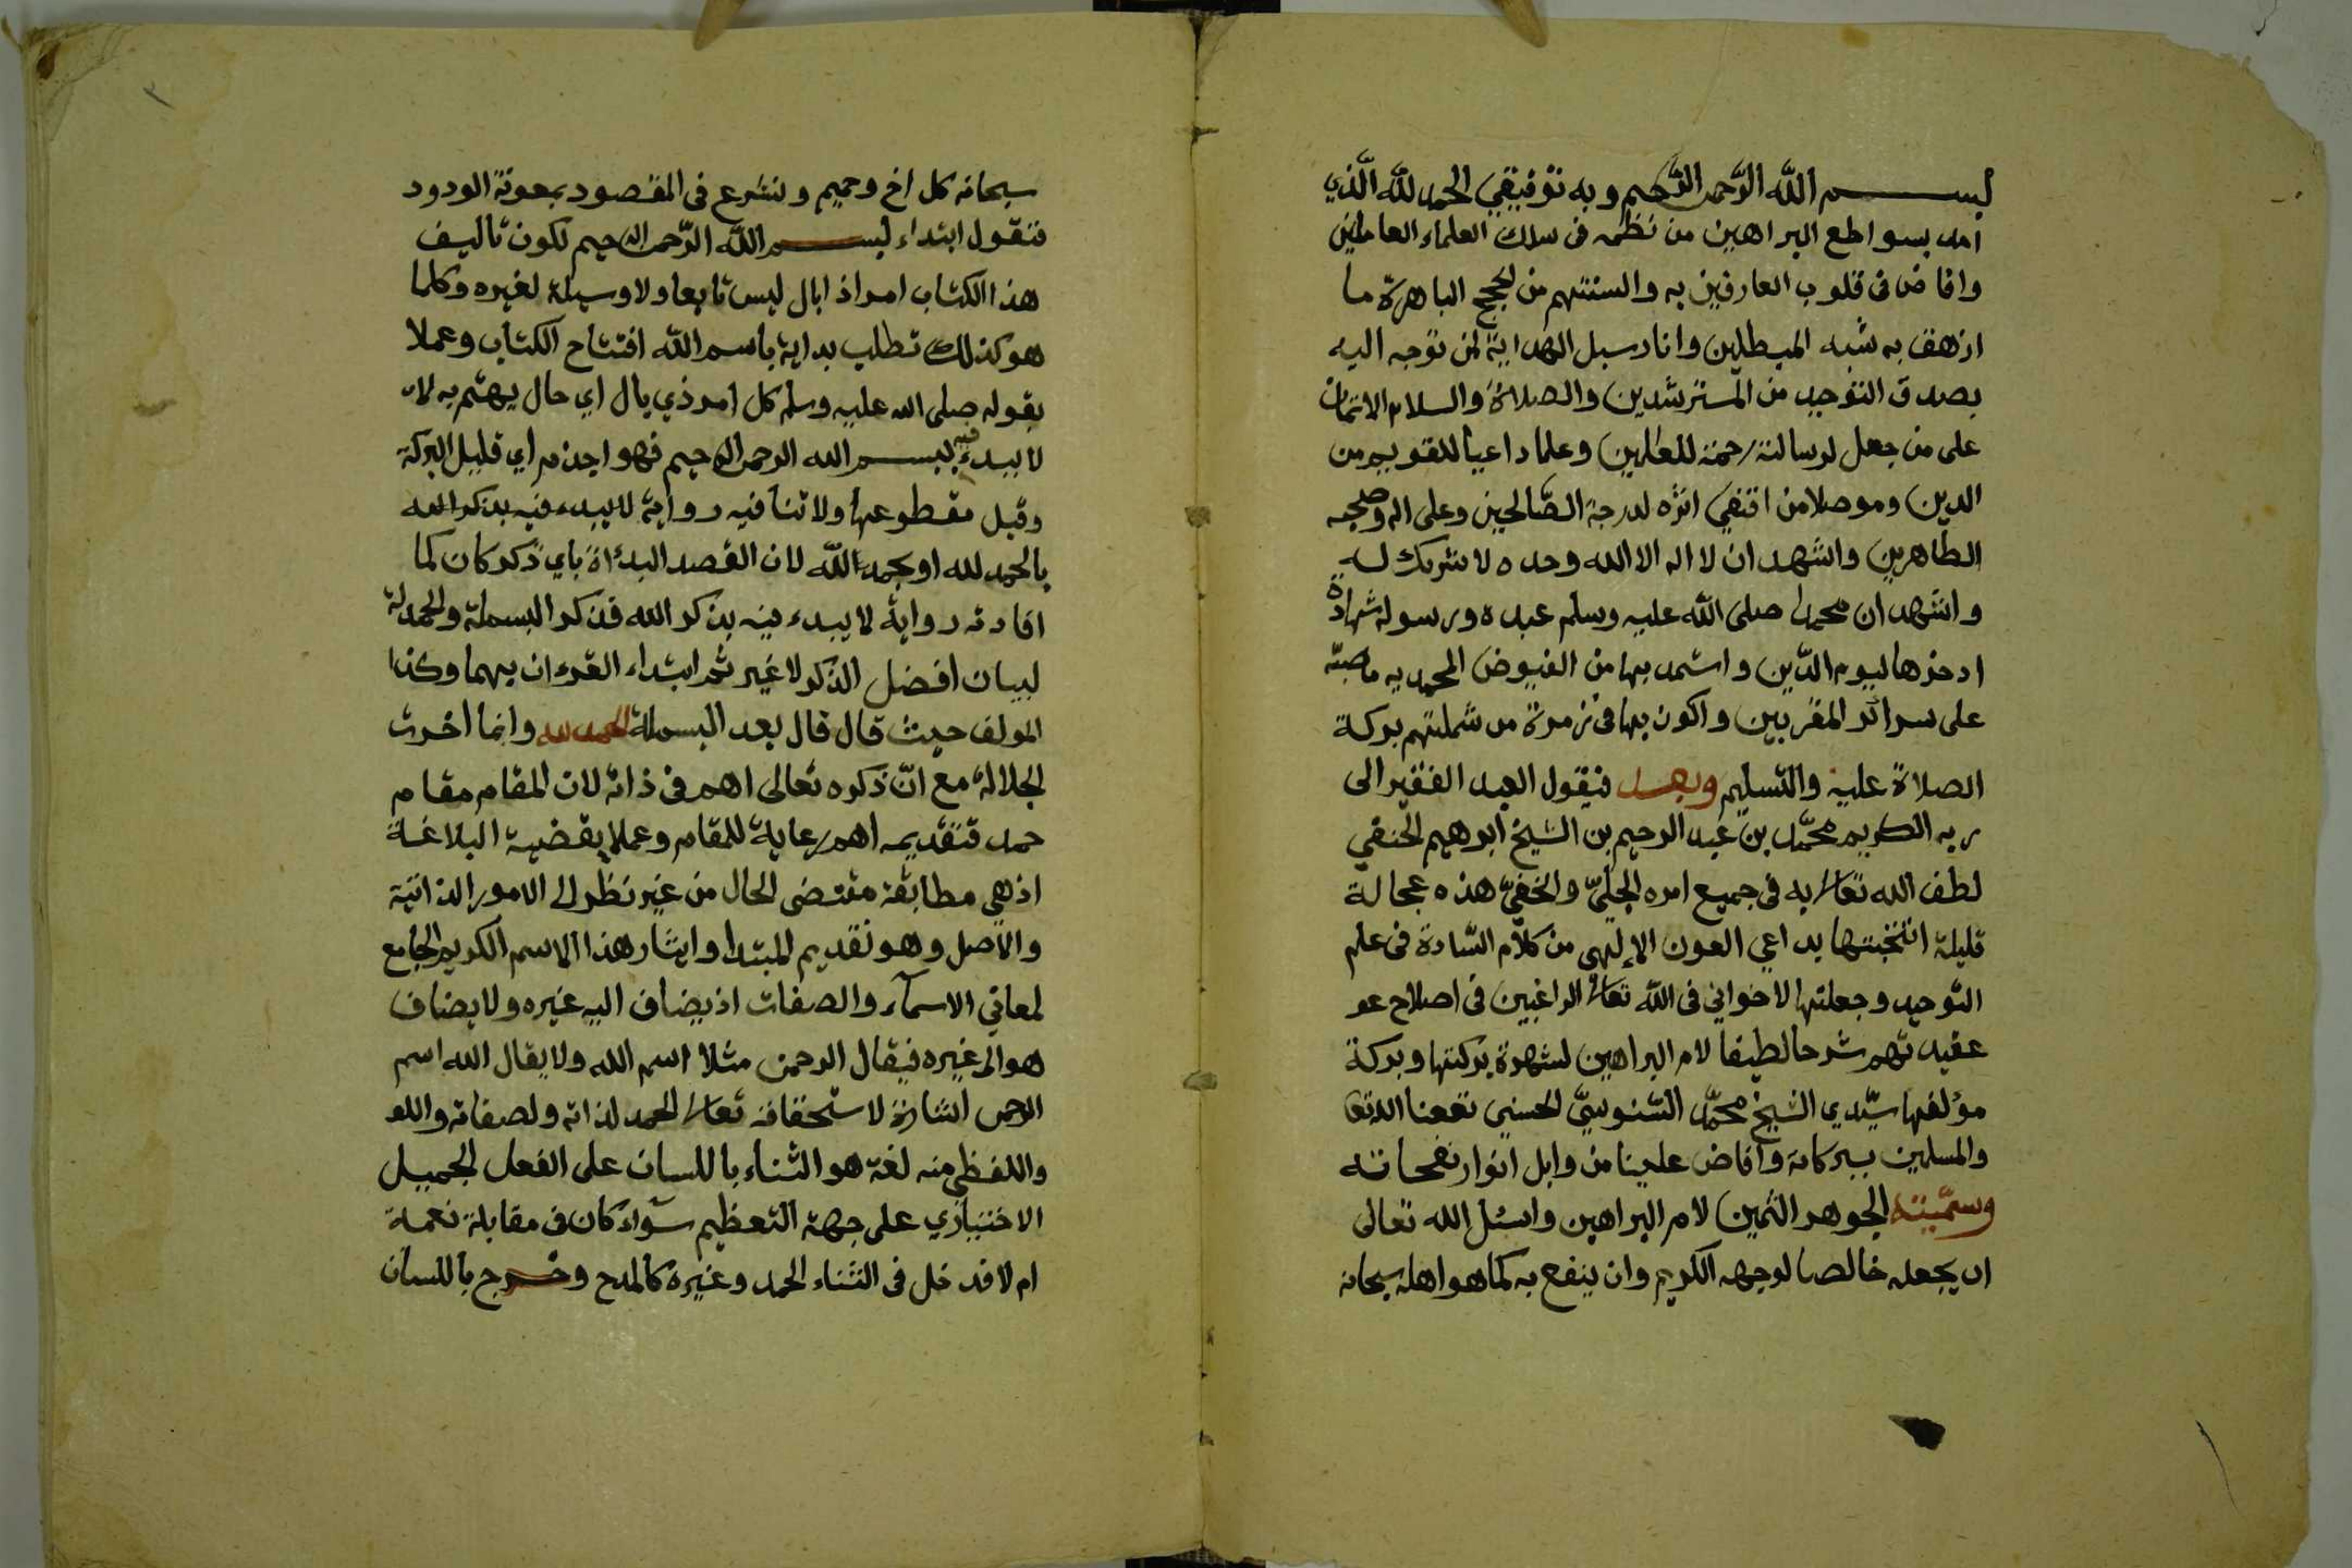 بســـــم الله الرحمن الرحيم وبه توفيقي الحمد لله الذي
امد بسواطع البراهين من نظمه في سلك العلماء العاملين
وافاض في قلوب العارفين به والسنتهم من الحجج الباهرة ما
ازهق به شبه المبطلين وانار سبل الهداية لمن توجه اليه
بصدق التوحيد من المسترشدين والصلاة والسلام الاتمان
على من جعل لرسالته رحمة للعالمين وعلما داعيا للقويم من
الدين وموصلا من اقتفي اثره لدرجة الصالحين وعلى اله وصحبه
الطاهرين واشهد ان لا اله الا الله وحده لا شريك له
واشهد ان محمدا صلى الله عليه وسلم عبده ورسوله شهادة
ادخرها ليوم الدين واستمد بها من الفيوض المحمديه ما صبته
على سرائر المقربين واكون بها في زمرة من شملتهم بركة
الصلاة عليه والتسليم وبعــد فيقول العبد الفقير الى
ربه الكريم محمد بن عبد الرحيم بن الشيخ ابرهيم الحنفي
لطف الله تعالى به في جميع امره الجليّ والخفيّ هذه عجالة
قليلة انتخبتها بداعي العون الالهي من كلام السادة في علم
التوحيد وجعلتها لاخواني في الله تعالى الراغبين في اصلاح عو
عقيدتهم شرحا لطيفا لام البراهين لشهرة بركتها وبركة
مؤلفها سيّدي الشيخ محمّد السنوسيّ الحسني نفعنا الله تعا
والمسلمين ببركاته وافاض علينا من وابل انوار نفحاته
وسمّيته الجوهر الثمين لام البراهين واسئل الله تعالى
ان يجعله خالصا لوجهه الكريم وان ينفع به كما هو اهله سبحانه
سبحانه كل اخ وحميم ولنشرع في المقصود بمعونة الودود
فنقول ابتداء بســـم الله الرّحمن الرحيم لكون تاليف
هذا الكتاب امرا ذا بال ليس تابعا ولا وسيلة لغيره وكلما
هو كذلك تطلب بداية باسم الله افتتاح الكتاب وعملا
بقوله صلى الله عليه وسلم كل امر ذي بال اي حال يهتم به لا
لا يبدء فيه ببســـم الله الرحمن الرحيم فهو اجذم اي قليل البركة
وقيل مقطوعها ولا تنافيه رواية لا يبدء فيه بذكر الله
بالحمد لله او بحمد الله لان القصد البدءاة باي ذكر كان كما
افادته رواية لا يبدء فيه بذكر الله فذكر البسملة والحمدلة
لبيان افضل الذكر لا غير ثم ابتداء القرءان بهما وكذا
المولف حيث قال قال بعد البسملة الحمد لله وانما اخرت
الجلالة مع انّ ذكره تعالى اهم في ذاته لان المقام مقام
حمد فتقديمه اهم رعاية للمقام وعملا بقضية البلاغة
اذ هي مطابقة مقتضى الحال من غير نظر الى الامور الذاتية
والاصل وهو تقديم المبتدا وايثار هذا الاسم الكريم الجامع
لمعاني الاسمآء والصفات اذ يضاف اليه غيره ولا يضاف
هو الى غيره فيقال الرحمن مثلا اسم الله ولا يقال الله اسم
الرحمن اشارة لاستحقاقه تعالى الحمد لذاته ولصفاته واللو
واللفظي منه لغة هو الثناء باللسان على الفعل الجميل
الاختياري على جهة التعظيم سوآء كان في مقابلة نعمة
ام لا فدخل في الثناء الحمد وغيره كالمدح وخرج باللسان